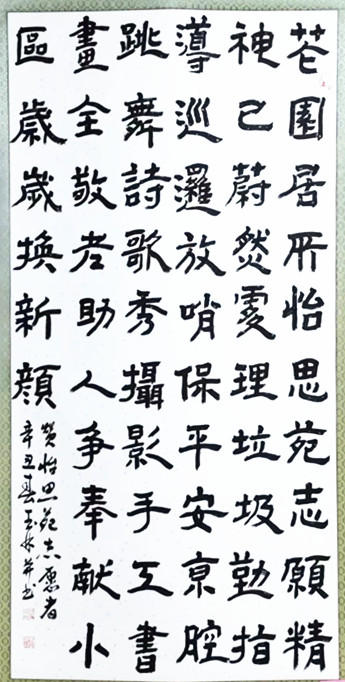 花園居所怡思苑志願精
神已蔚然處理垃圾勤指
導巡邏放哨保平安京腔
跳舞詩歌秀攝影手工書
畫全敬老助人争奉献小
區歲歲換新顔
贊怡思苑志愿者
辛丑春玉林并书